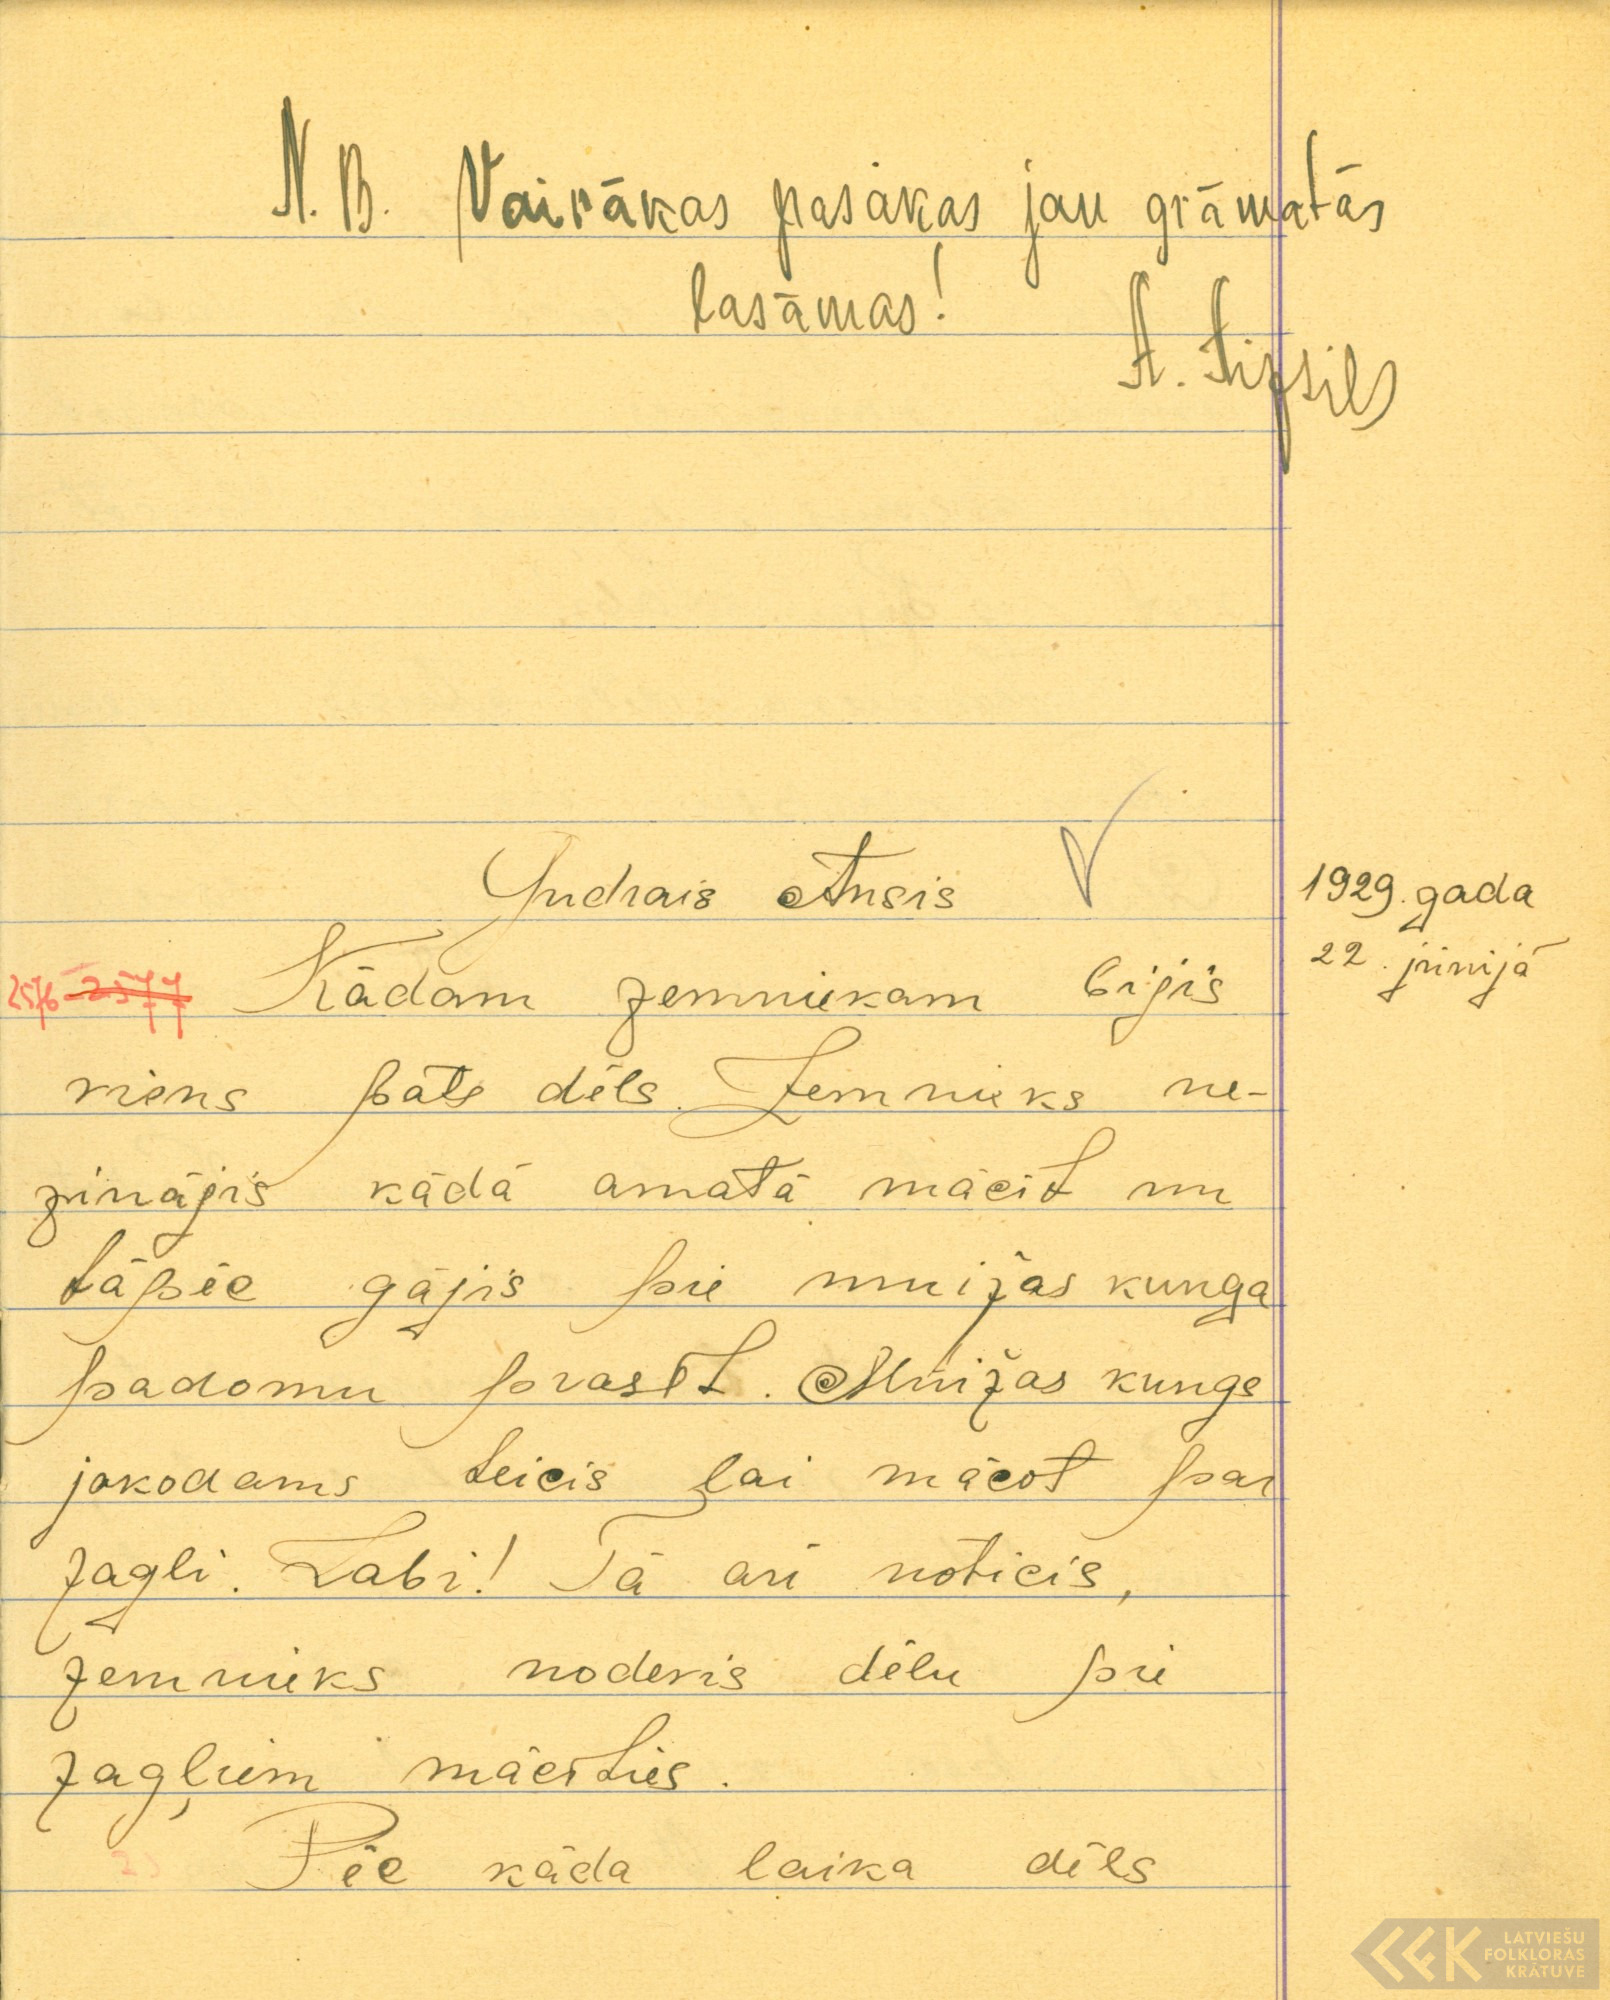 N. B. Vairākas pasakas jau grāmatās
lasāmas!
A. Aizsils
Gudrais Ansis
1929. gada
22. jūnijā
2576 2577
Kādam zemniekam bijis
viens pats dēls. Zemnieks ne-
zinājis kādā amatā mācīt un
tāpēc gājis pie muižas kunga
padomu prasīt. Muižas kungs
jokodams teicis lai mācot par
zagli. Labi! Tā arī noticis,
zemnieks nodevis dēlu pie
zagļiem mācīties.
Pēc kāda laika dēls
LATVIEŠU
FOLKLORAS
KRĀTUVE